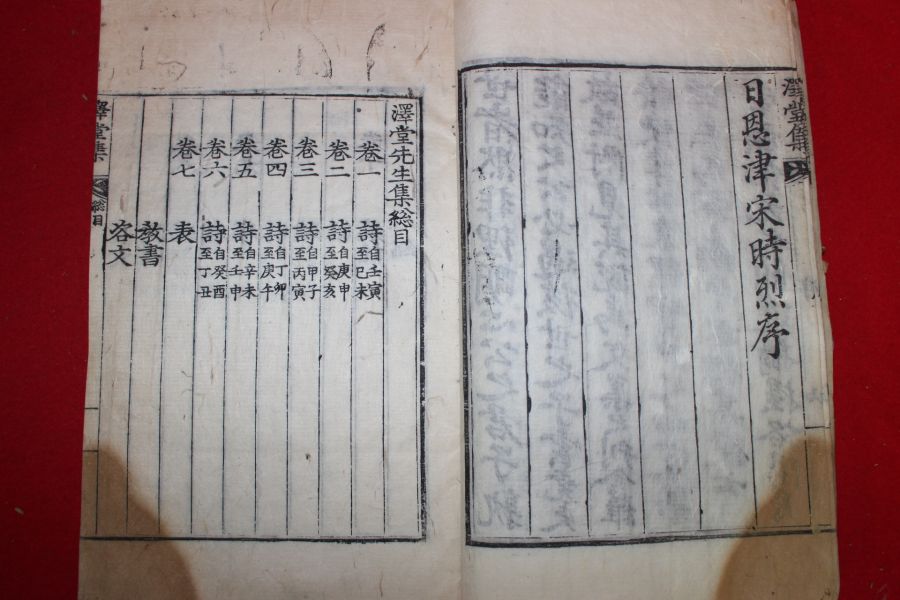 澤堂集
日恩津宋時烈序
澤堂先生集総目
卷一 詩 自壬寅至己未
卷二 詩 自庚申至癸亥
卷三 詩 自甲子至丙寅
卷四 詩 自丁卯至庚午
卷五 詩 自辛未至壬申
卷六 詩 自癸酉至丁丑
卷七 表
教書
咨文
澤堂集 総目